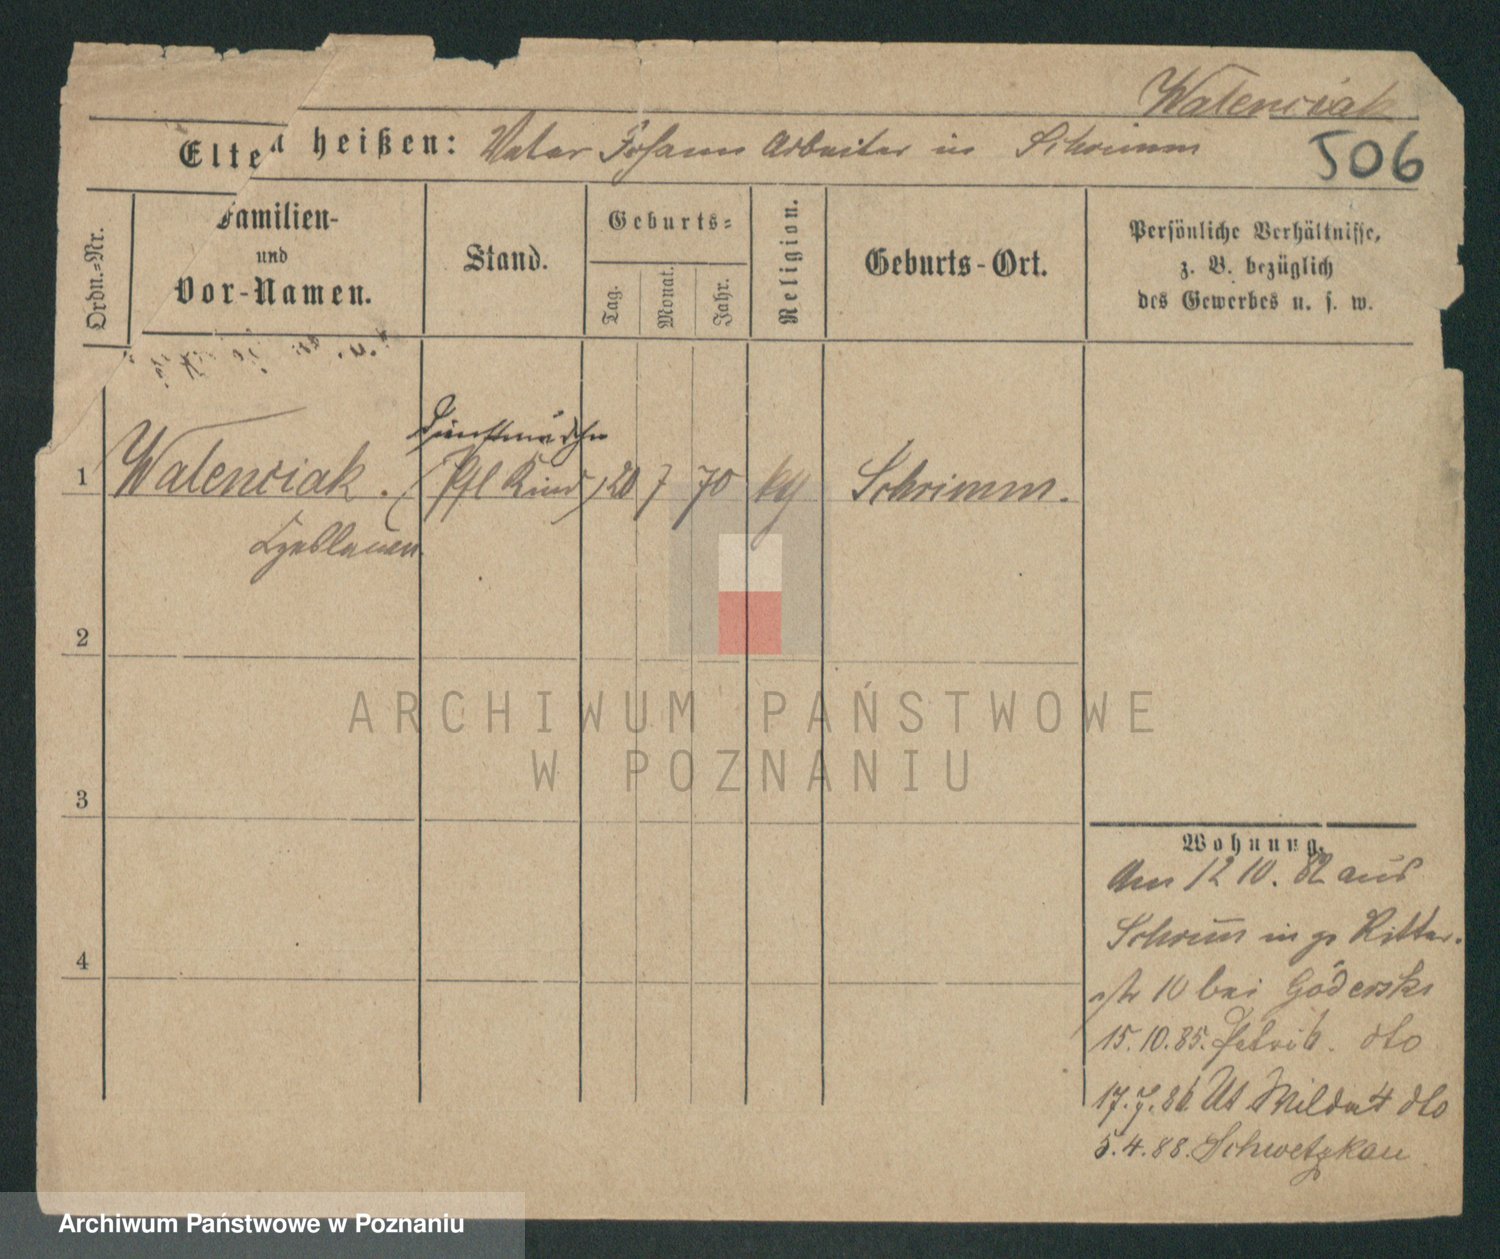 Walenciak
Eltern heißen: Vater Johann Arbeiter in Schrimm
506
Ordn.=Nr.
Familien-
und
Vor-Namen.
Stand.
Geburts=
Tag.
Monat.
Jahr.
Religion.
Geburts-Ort.
Persönliche Verhältnisse,
z. B. bezüglich
des Gewerbes u. s. w.
Dienstmädchen
1 Walenciak. (Pfl Kind) 20 7 70 kg Schrimm.
2
3
4
Wohnung.
Am 12 10. 82 aus
Schrimm in gr Ritter-
str 10 bei Goderski
15.10.85. Petrib. dto
17.7.86 Ut Wilda 4 dto
5.4.88. Schwetzkau
ARCHIWUM PAŃSTWOWE
W POZNANIU
Archiwum Państwowe w Poznaniu